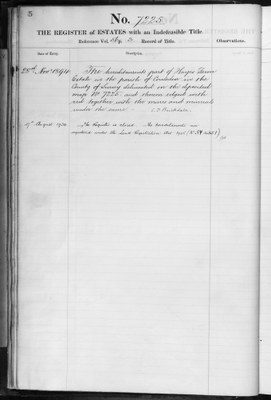 5
No. 7225
THE REGISTER of ESTATES with an Indefeasible Title.
Reference Vol. Record of Title.
Observations.
Date of Entry.
Description.
28th Nov 1894
The hereditaments part of
Estate in the parish of in the
County of Surrey delineated on the Specified
map No 7225 and thereon edged with
red together with the mines and minerals
under the same
17th August 1920
The Register is closed. The hereditaments are
registered under the Land Registration Act